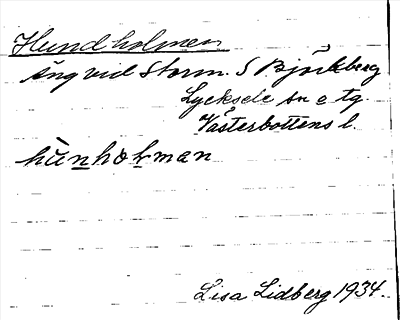 Hundholmen
Äng vid Storm. S Björkberg
Lycksele sn o tg.
Västerbottens l.
hùnhołman
Lisa Lidberg 1934.